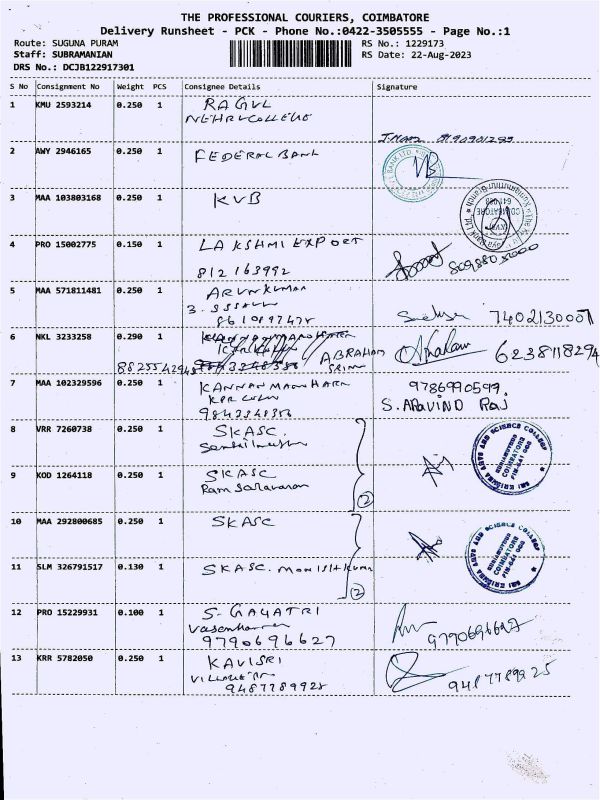 THE PROFESSIONAL COURIERS, COIMBATORE
Delivery Runsheet - PCK - Phone No.:0422-3505555 - Page No.:1
Route: SUGUNA PURAM RS No.: 1229173
Staff: SUBRAMANIAN RS Date: 22-Aug-2023
DRS No.: DCJB122917301
S No Consignment No Weight PCS Consignee Details Signature
1 KMU 2593214 0.250 1 RAGUL
NEHRU COLLEGE
2 AWY 2946165 0.250 1 FEDERAL BANK
3 MAA 103803168 0.250 1 KVB
4 PRO 15002775 0.150 1 LAKSHMI EXPORT
812163992
5 MAA 571811481 0.250 1 ARUNKUMAR
7402130007
6 NKL 3233258 0.290 1
ABRAHAM 6238118294
7 MAA 102329596 0.250 1 KANNAN MANOHARA 9786990599.
S. ARAVIND RAJ
8 VRR 7260738 0.250 1 SKASC.
9 KOD 1264118 0.250 1 SKASC
Ram Saravanan
2
10 MAA 292800685 0.250 1 SKASC
11 SLM 326791517 0.130 1 SKASC. MONISHKUMA
2
12 PRO 15229931 0.100 1 S. GAYATRI
9790696627 9790696627
13 KRR 5782050 0.250 1 KAVISRI
9487789925 9487789925